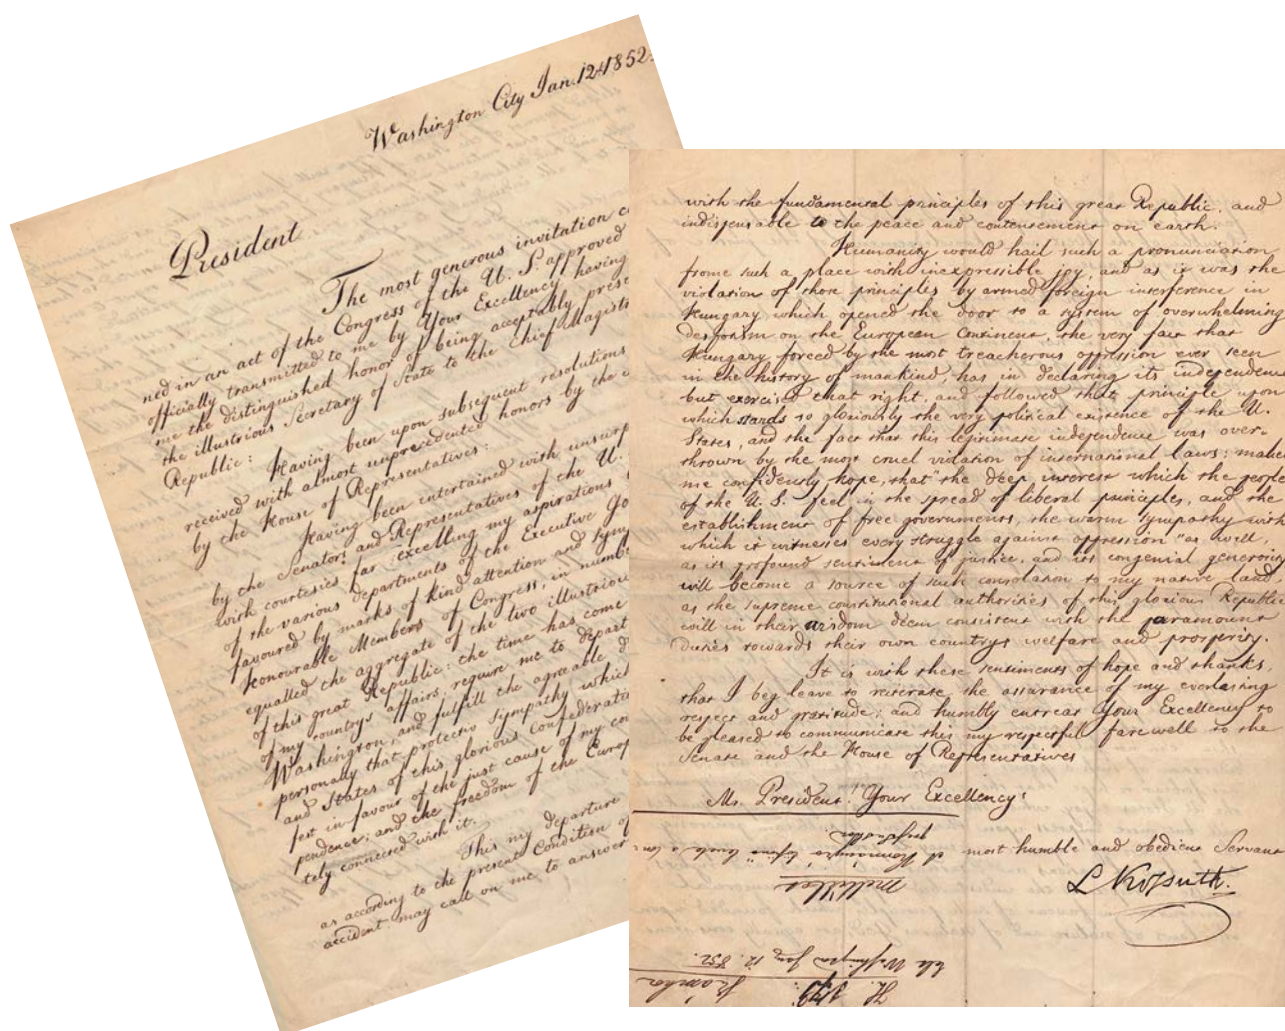 Washington City Jan. 12th 1852.
President
The most generous invitation
ned in an act of the Congress of the U. S. approved
officially transmitted to me by Your Excellency having
me the distinguished honor of being acceptably
the illustrious Secretary of State to the Chief
Republic:
Having been upon subsequent resolutions
received with almost unprecedented honors by the
by the House of Representatives:
Having been entertained with
by the Senators and Representatives of the U.
with courtesies far excelling my aspirations
of the various departments of the Executive
favoured by marks of kind attention and
honourable Members of Congress, in
equalled the aggregate of the two
of this great Republic: the time has come
of my countrys affairs, require me to depart
Washington, and fulfill the agreeable
personally that protective sympathy which
and States of this glorious
fest in favour of the just cause of my
pendence; and the freedom of the
tely connected with it.
This my departure
as according to the present Condition of
accident may call on me to answer
with the fundamental principles of this great Republic, and
indispensable to the peace and contentement on earth.
Humanity would hail such a pronunciation
frome such a place with inexpressible joy, and as it was the
violation of those principles by armed foreign interference in
Hungary which opened the door to a system of overwhelming
despotism on the European Continent, the very fact that
Hungary forced by the most treacherous oppression ever seen
in the history of mankind, has in declaring its independence
but exercised that right, and followed that principle upon
which stands so gloriously the very political existence of the U.
States, and the fact that this legitimate independence was over-
thrown by the most cruel violation of international laws: makes
me confidently hope, that "the deep interest which the people
of the U. S. feel in the spread of liberal principles, and the
establishment of free governments, the warm sympathy with
which it witnesses every struggle against oppression" as well,
as its profound sentiment of justice, and its congenial generosity
will become a source of such consolation to my native land,
as the supreme constitutional authorities of this glorious Republic
will in their wisdom deem consistent with the paramount
duties towards their own countrys welfare and prosperity.
It is with these sentiments of hope and thanks,
that I beg leave to reiterate the assurance of my everlasting
respect and gratitude; and humbly entreat Your Excellency to
be pleased to communicate this my respectful farewell to the
Senate and the House of Representatives
Mr. President! Your Excellency:
most humble and obedient Servant
L Kossuth.